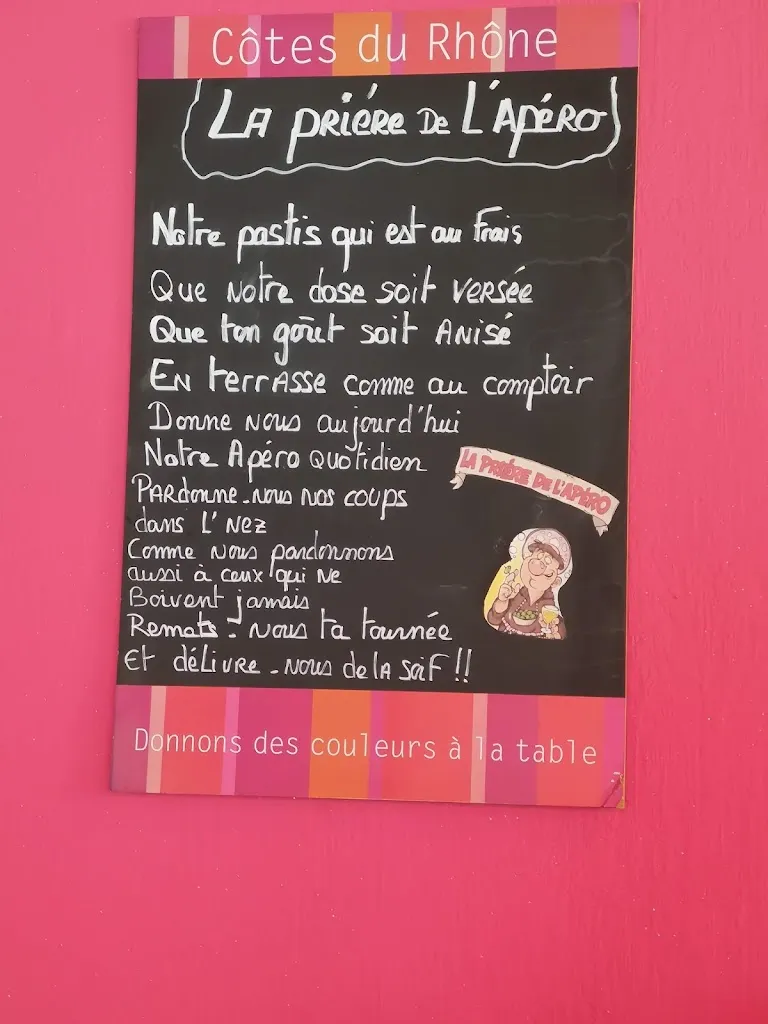 Côtes du Rhône
LA PRIÉRE DE L'APÉRO
Notre pastis qui est au Frais
Que Notre dose soit VERSÉE
Que ton goût soit ANISÉ
EN terrASSE comme au comptoir
Donne Nous aujourd'hui
Notre Apéro QUOTIDIEN
PARdonne-nous nos coups
dans L'NEZ
Comme Nous pardonnons
aussi à ceux qui Ne
Boivent jamais
LA PRIÈRE DE L'APÉRO
Remets-Nous ta tournée
Et déLivre-nous de lA soiF !!
Donnons des couleurs à la table